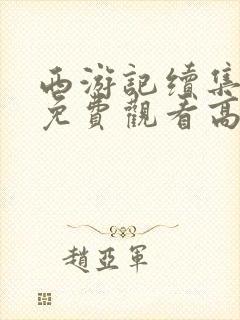 西游記續集
免費觀看高
趙亞軍